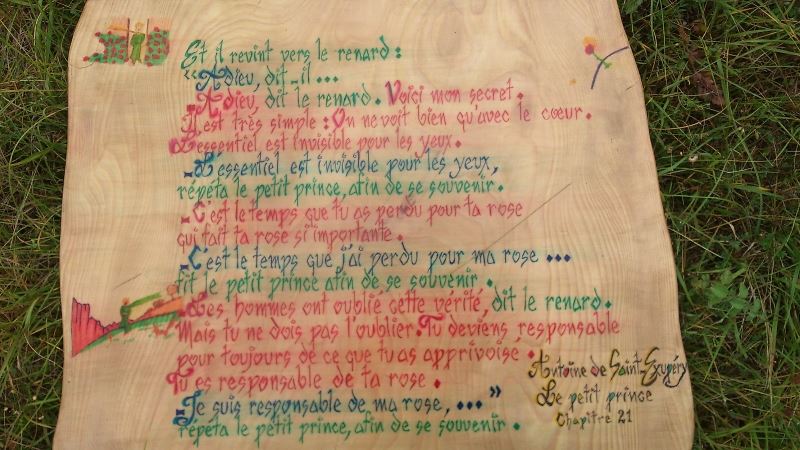 Et il revint vers le renard :
"Adieu, dit-il ...
- Adieu, dit le renard. Voici mon secret.
Il est très simple : On ne voit bien qu'avec le cœur.
L'essentiel est invisible pour les yeux.
- L'essentiel est invisible pour les yeux,
répéta le petit prince, afin de se souvenir.
- C'est le temps que tu as perdu pour ta rose
qui fait ta rose si importante.
- C'est le temps que j'ai perdu pour ma rose ...
fit le petit prince afin de se souvenir.
- Les hommes ont oublié cette vérité, dit le renard.
Mais tu ne dois pas l'oublier. Tu deviens responsable
pour toujours de ce que tu as apprivoisé.
Tu es responsable de ta rose.
- Je suis responsable de ma rose, ... "
répéta le petit prince, afin de se souvenir.
Antoine de Saint-Exupéry
Le petit prince
Chapitre 21